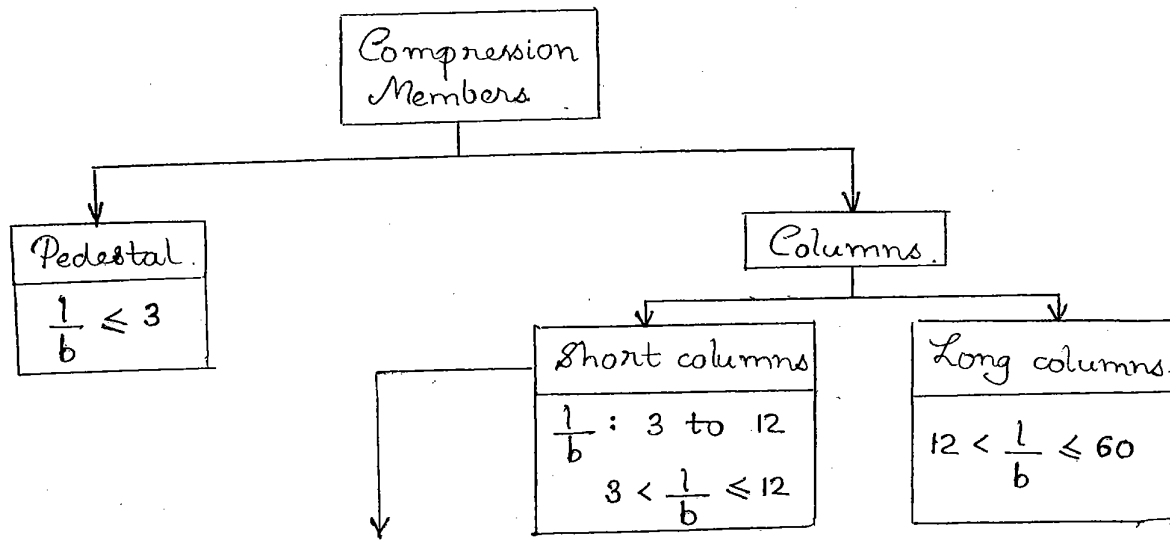 Compression
Members
Pedestal.
l/b ≤ 3
Columns.
Short columns
l/b : 3 to 12
3 < l/b ≤ 12
Long columns.
12 < l/b ≤ 60